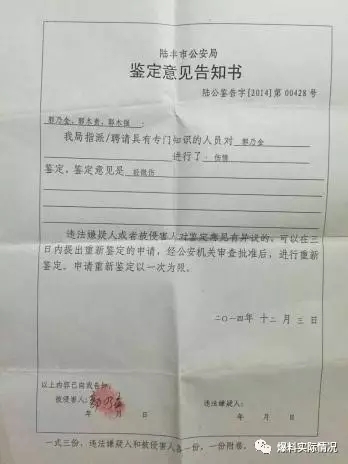 陆丰市公安局
鉴定意见告知书
陆公鉴告字[2014]第 00428 号
郭乃金、郭木贵、郭木强：
我局指派/聘请具有专门知识的人员对 郭乃金
进行了 伤情
鉴定，鉴定意见是 轻微伤
违法嫌疑人或者被侵害人对鉴定意见有异议的，可以在三
日内提出重新鉴定的申请，经公安机关审查批准后，进行重新
鉴定。申请重新鉴定以一次为限。
二〇一四年 十二月 三日
以上内容已向我告知。
被侵害人：
违法嫌疑人：
年 月 日
年 月 日
一式三份，违法嫌疑人和被侵害人各一份，一份附卷。
爆料实际情况